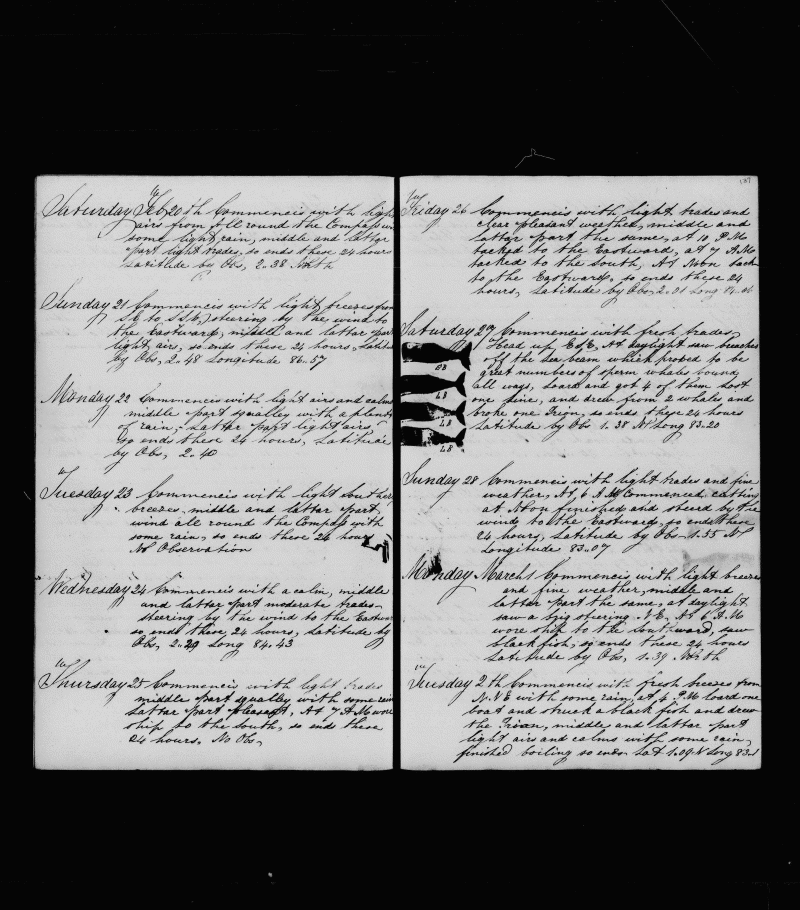 Saturday Feb 20th Commencis with light
airs from all round the Compass
some light rain, middle and lattar
part light trades, so ends these 24 hours
Latitude by Obs, 2.38 North
Sunday 21 Commencis with light breezes from
to steering by the wind to
the Eastward, middle and lattar part
light airs, so ends these 24 hours,
by Obs, 2.48 Longitude 86.57
Monday 22 Commencis with light airs and calms
middle part squalley with a plenty
of rain, Lattar part light airs,
so ends these 24 hours, Latitude
by Obs, 2.40
Tuesday 23 Commencis with light
breezes, middle and lattar part,
wind all round the Compass with
some rain, so ends these 24 hours
No Observation
Wednesday 24 Commencis with a calm, middle
and lattar part moderate trades
steering by the wind to the
so ends these 24 hours, Latitude by
Obs, 2.29 Long 84.43
Thursday 25 Commencis with light trades
middle part squalley with some rain
Lattar part pleasent, At 7 A.M wore
ship to the South, so ends these
24 hours, No Obs,
137
Friday 26 Commencis with light trades and
clear pleasant weather, middle and
lattar part the same, at 10 P.M
tacked to the Eastward, at 7 A.M
tacked to the South, At Noon tack
to the Eastward, so ends these 24
hours, Latitude by Obs, 2.01 Long
Saturday 27 Commencis with fresh trades
Head up ESE, At daylight saw breaches
off the Lea beam which proved to be
great numbers of sperm whales bound
all ways, Loard and got 4 of them lost
one and drew from 2 whales and
broke one Iron, so ends these 24 hours
Latitude by Obs 1.38 Nt Long 83.20
6B
LB
LB
LB
Sunday 28 Commencis with light trades and fine
weather, At 6 A.M Commenced cutting
at Noon finished and steerd by the
wind to the Eastward, so ends these
24 hours, Latitude by Obs 1.55 Nt
Longitude 83.07
Monday March 1 Commencis with light breezes
and fine weather, middle and
lattar part the same, at daylight
saw a brig steering N.E, At 6 A.M
wore ship to the Southward, saw
blackfish, so ends these 24 hours
Latitude by Obs, 1.39 North
Tuesday 2th Commencis with fresh breezes from
N.N.E with some rain, at 4 P.M loard one
boat and struck a black fish and drew
the Iron, middle and lattar part
light airs and calms with some rain,
finished boiling so ends Lat 1.09 N Long